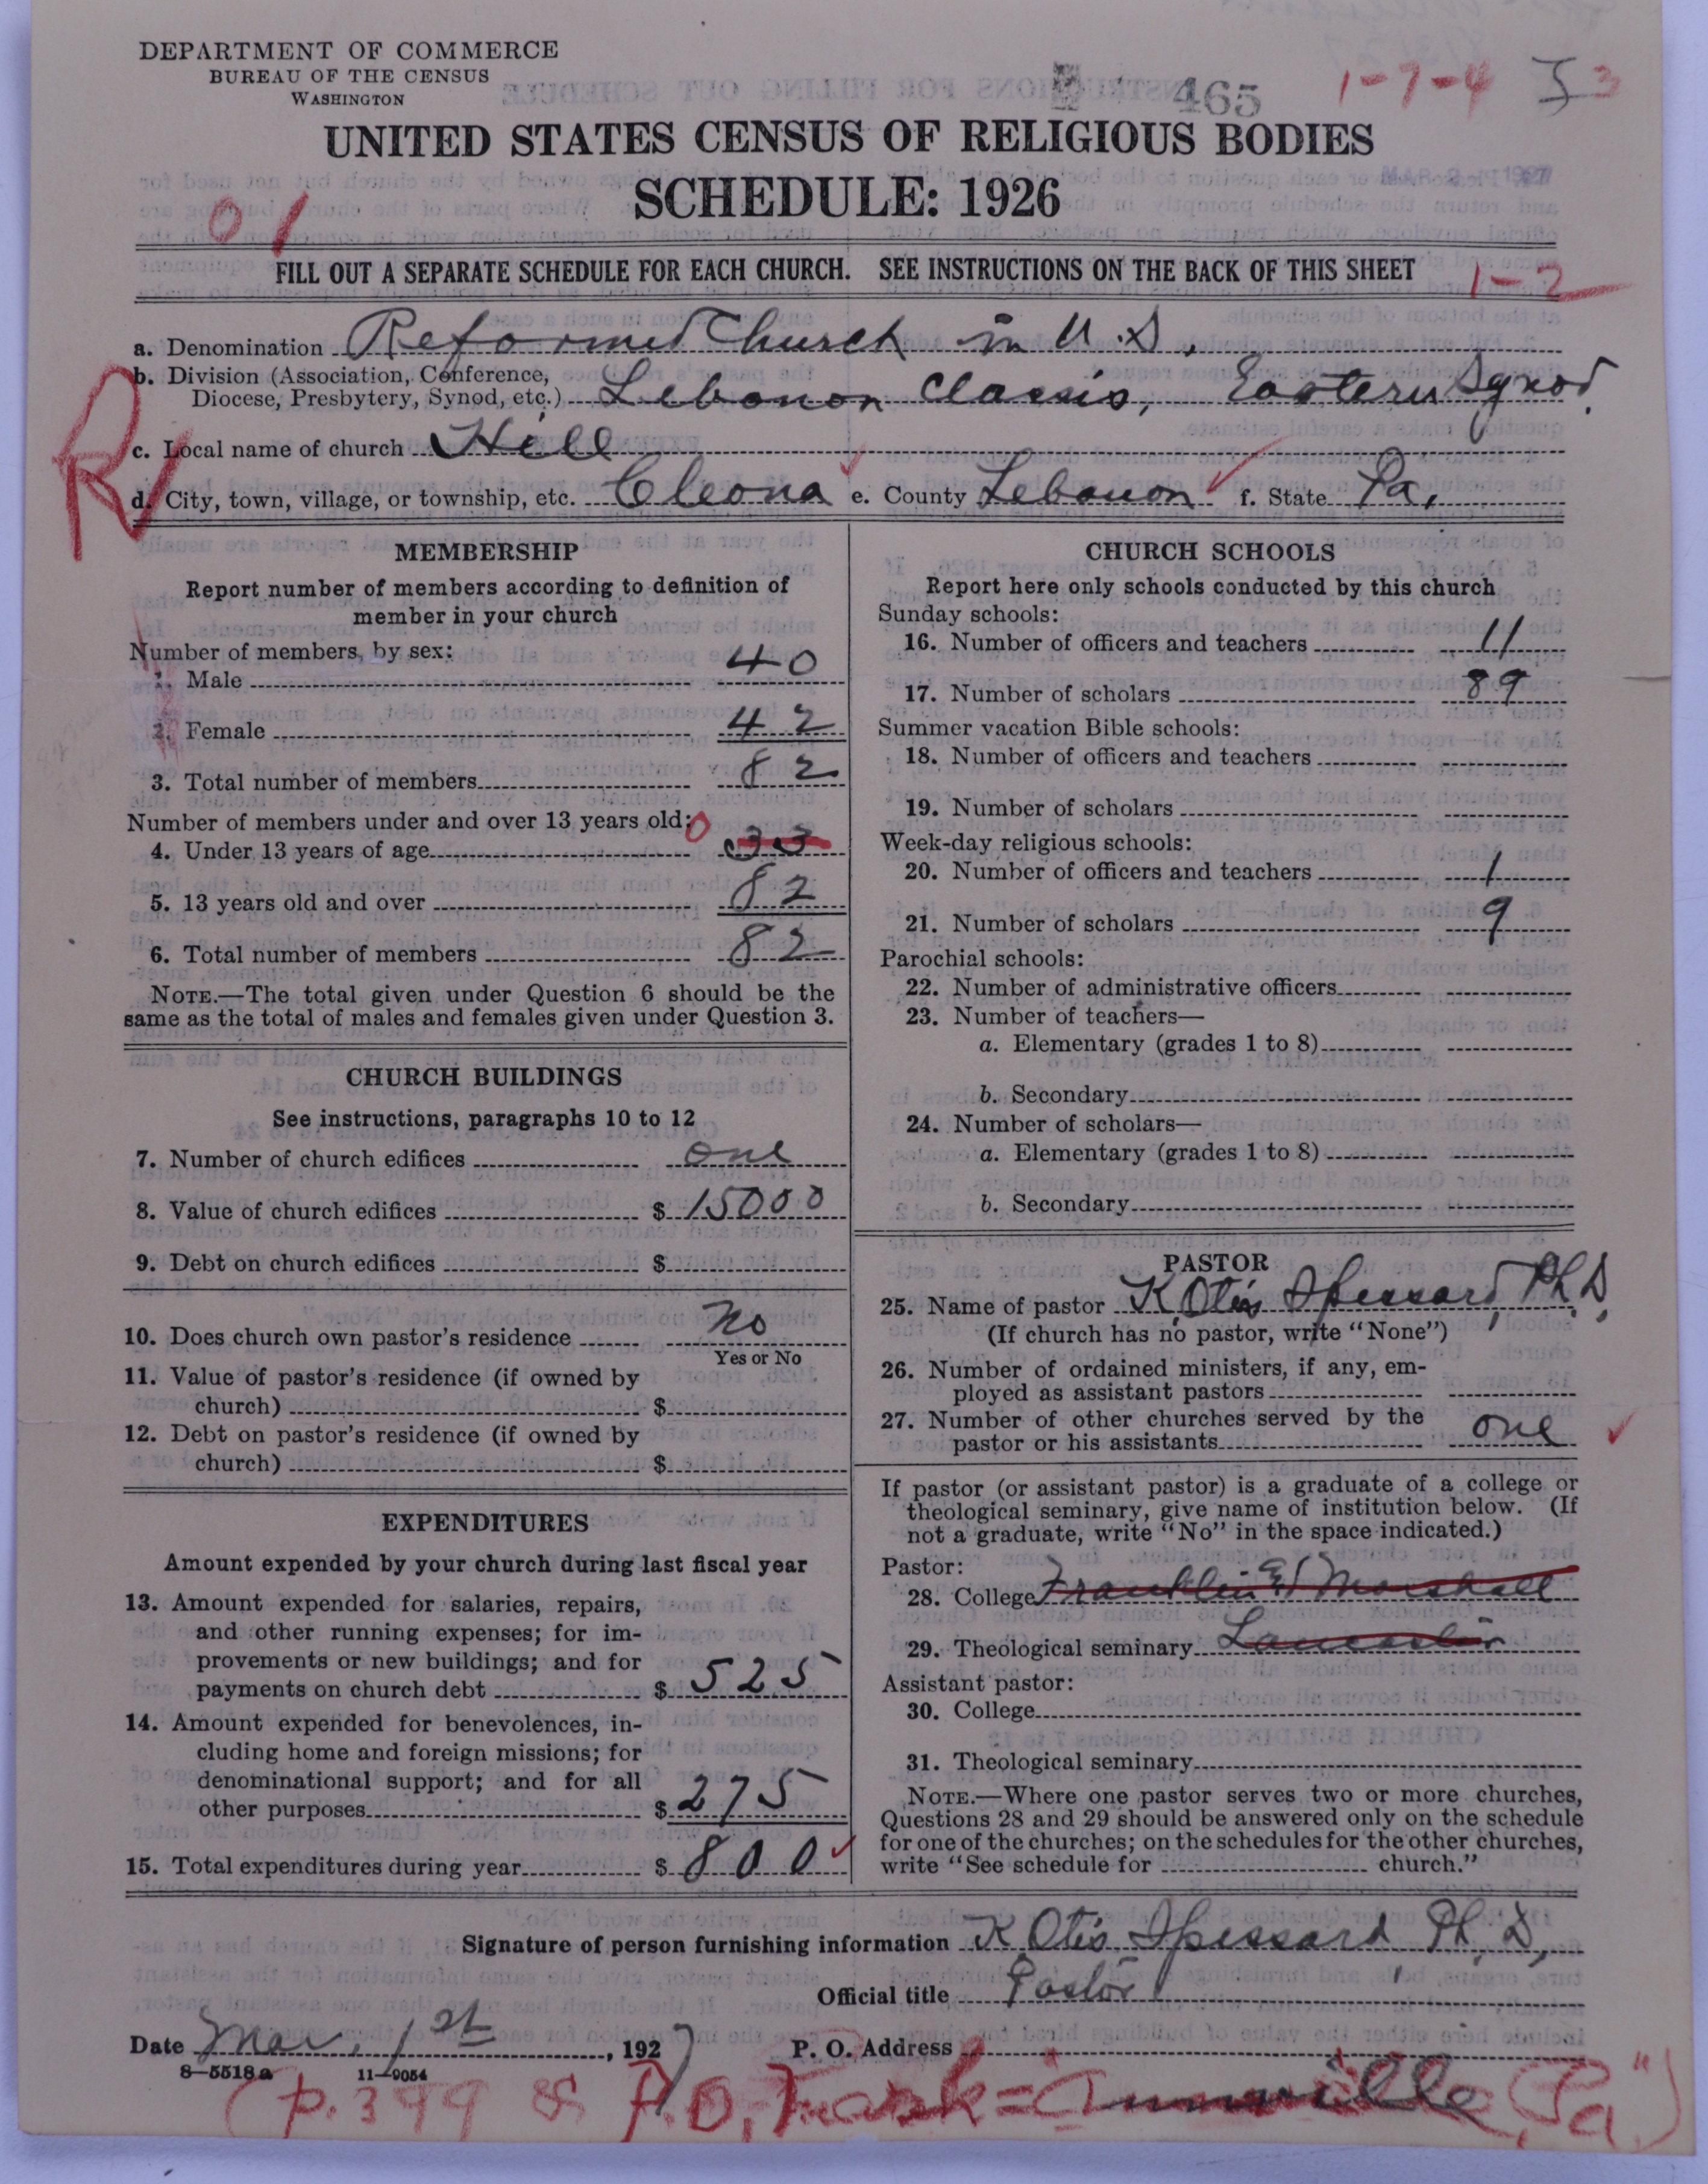 DEPARTMENT OF COMMERCE
BUREAU OF THE CENSUS
WASHINGTON
465
1-7-4
3
UNITED STATES CENSUS OF RELIGIOUS BODIES
SCHEDULE: 1926
MAR 2 1927
01
FILL OUT A SEPARATE SCHEDULE FOR EACH CHURCH. SEE INSTRUCTIONS ON THE BACK OF THIS SHEET
1-2
a. Denomination Reformed Church in U.S.
b. Division (Association, Conference, Diocese, Presbytery, Synod, etc.) Lebanon Classis, Eastern Synod.
R
c. Local name of church Hill
d. City, town, village, or township, etc. Cleona e. County Lebanon f. State Pa.
MEMBERSHIP
Report number of members according to definition of
member in your church
Number of members, by sex:
1. Male 40
2. Female 42
3. Total number of members 82
Number of members under and over 13 years old:
0
4. Under 13 years of age 33
5. 13 years old and over 82
6. Total number of members 82
NOTE.—The total given under Question 6 should be the
same as the total of males and females given under Question 3.
CHURCH BUILDINGS
See instructions, paragraphs 10 to 12
7. Number of church edifices one
8. Value of church edifices $ 15000
9. Debt on church edifices $
10. Does church own pastor's residence No
Yes or No
11. Value of pastor's residence (if owned by
church) $
12. Debt on pastor's residence (if owned by
church) $
EXPENDITURES
Amount expended by your church during last fiscal year
13. Amount expended for salaries, repairs,
and other running expenses; for im-
provements or new buildings; and for
payments on church debt $ 525
14. Amount expended for benevolences, in-
cluding home and foreign missions; for
denominational support; and for all
other purposes $ 275
15. Total expenditures during year $ 800
CHURCH SCHOOLS
Report here only schools conducted by this church
Sunday schools:
16. Number of officers and teachers 11
17. Number of scholars 89
Summer vacation Bible schools:
18. Number of officers and teachers
19. Number of scholars
Week-day religious schools:
20. Number of officers and teachers 1
21. Number of scholars 9
Parochial schools:
22. Number of administrative officers
23. Number of teachers—
a. Elementary (grades 1 to 8)
b. Secondary
24. Number of scholars—
a. Elementary (grades 1 to 8)
b. Secondary
PASTOR
25. Name of pastor K. Otis Spessard, Ph.D.
(If church has no pastor, write "None")
26. Number of ordained ministers, if any, em-
ployed as assistant pastors
27. Number of other churches served by the
pastor or his assistants one
If pastor (or assistant pastor) is a graduate of a college or
theological seminary, give name of institution below. (If
not a graduate, write "No" in the space indicated.)
Pastor:
28. College Franklin & Marshall
29. Theological seminary Lancaster
Assistant pastor:
30. College
31. Theological seminary
NOTE.—Where one pastor serves two or more churches,
Questions 28 and 29 should be answered only on the schedule
for one of the churches; on the schedules for the other churches,
write "See schedule for church."
Signature of person furnishing information K. Otis Spessard, Ph.D.,
Official title Pastor
Date Mar. 1st, 1927 P. O. Address
8-5518a 11-9054
(p. 399 & P.O. mark = "Annville, Pa.")